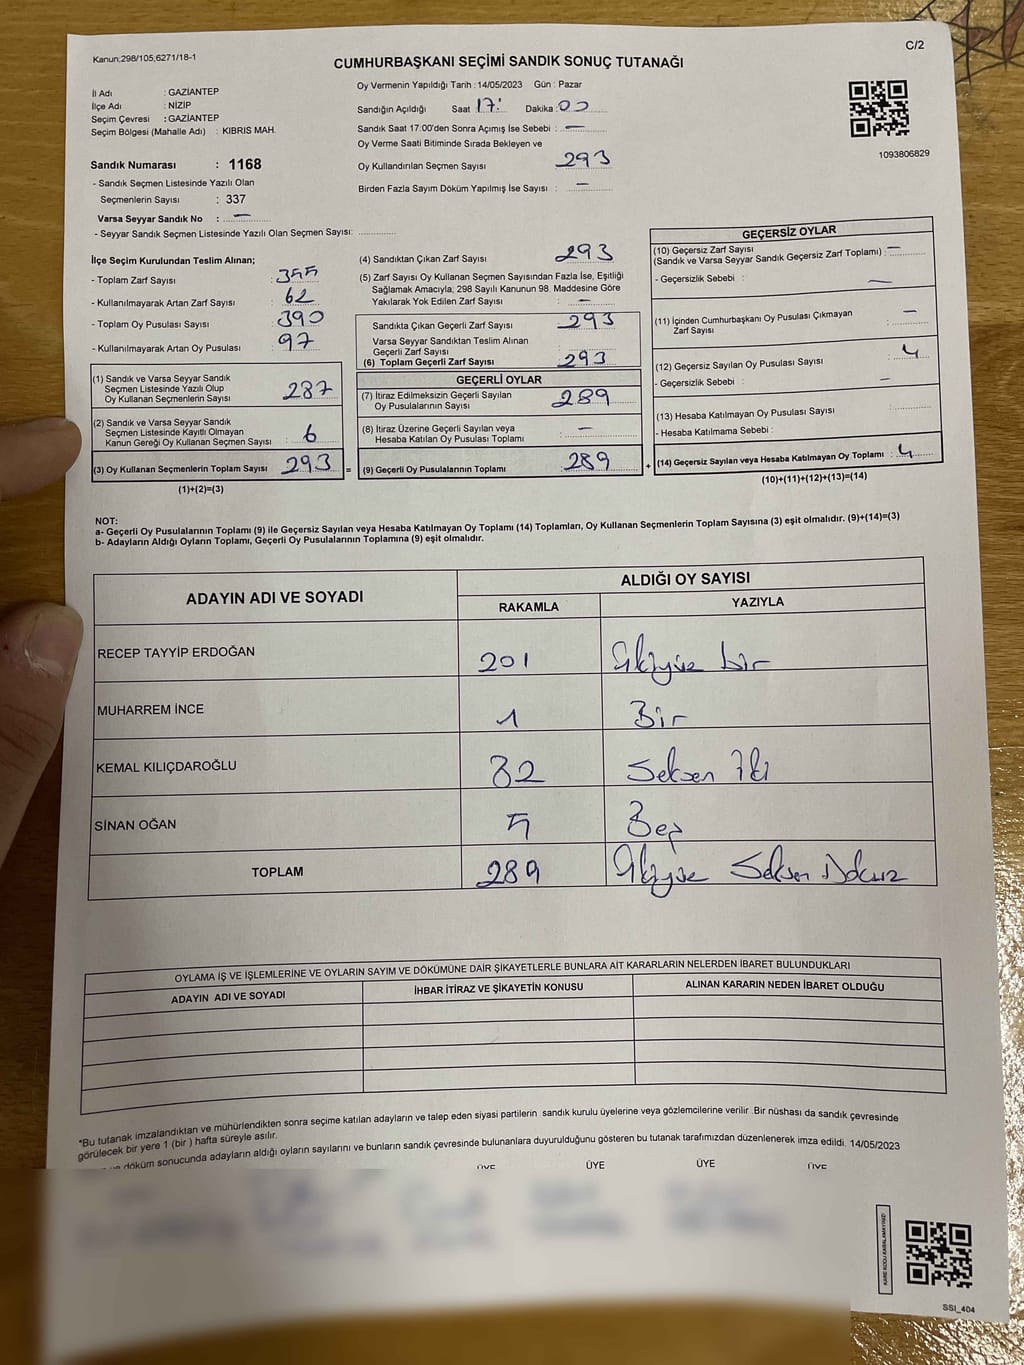 Kanun;298/105;6271/18-1
C/2
CUMHURBAŞKANI SEÇİMİ SANDIK SONUÇ TUTANAĞI
İl Adı : GAZİANTEP
İlçe Adı : NİZİP
Seçim Çevresi : GAZİANTEP
Seçim Bölgesi (Mahalle Adı) : KIBRIS MAH.
Sandık Numarası : 1168
- Sandık Seçmen Listesinde Yazılı Olan
Seçmenlerin Sayısı : 337
Varsa Seyyar Sandık No : —
- Seyyar Sandık Seçmen Listesinde Yazılı Olan Seçmen Sayısı:
Oy Vermenin Yapıldığı Tarih : 14/05/2023 Gün : Pazar
Sandığın Açıldığı Saat 17: Dakika : 00
Sandık Saat 17:00'den Sonra Açımış İse Sebebi : —
Oy Verme Saati Bitiminde Sırada Bekleyen ve
Oy Kullandırılan Seçmen Sayısı 293
Birden Fazla Sayım Döküm Yapılmış İse Sayısı : —
1093806829
İlçe Seçim Kurulundan Teslim Alınan;
- Toplam Zarf Sayısı : 355
- Kullanılmayarak Artan Zarf Sayısı : 62
- Toplam Oy Pusulası Sayısı : 390
- Kullanılmayarak Artan Oy Pusulası : 97
(1) Sandık ve Varsa Seyyar Sandık
Seçmen Listesinde Yazılı Olup
Oy Kullanan Seçmenlerin Sayısı : 287
(2) Sandık ve Varsa Seyyar Sandık
Seçmen Listesinde Kayıtlı Olmayan
Kanun Gereği Oy Kullanan Seçmen Sayısı : 6
(3) Oy Kullanan Seçmenlerin Toplam Sayısı : 293 =
(1)+(2)=(3)
(4) Sandıktan Çıkan Zarf Sayısı : 293
(5) Zarf Sayısı Oy Kullanan Seçmen Sayısından Fazla İse, Eşitliği
Sağlamak Amacıyla; 298 Sayılı Kanunun 98. Maddesine Göre
Yakılarak Yok Edilen Zarf Sayısı : —
Sandıkta Çıkan Geçerli Zarf Sayısı : 293
Varsa Seyyar Sandıktan Teslim Alınan
Geçerli Zarf Sayısı
(6) Toplam Geçerli Zarf Sayısı : 293
GEÇERLİ OYLAR
(7) İtiraz Edilmeksizin Geçerli Sayılan
Oy Pusulalarının Sayısı : 289
(8) İtiraz Üzerine Geçerli Sayılan veya
Hesaba Katılan Oy Pusulası Toplamı : —
(9) Geçerli Oy Pusulalarının Toplamı : 289 +
GEÇERSİZ OYLAR
(10) Geçersiz Zarf Sayısı
(Sandık ve Varsa Seyyar Sandık Geçersiz Zarf Toplamı) : —
- Geçersizlik Sebebi : —
(11) İçinden Cumhurbaşkanı Oy Pusulası Çıkmayan
Zarf Sayısı : —
(12) Geçersiz Sayılan Oy Pusulası Sayısı : 4
- Geçersizlik Sebebi : —
(13) Hesaba Katılmayan Oy Pusulası Sayısı :
- Hesaba Katılmama Sebebi :
(14) Geçersiz Sayılan veya Hesaba Katılmayan Oy Toplamı : 4
(10)+(11)+(12)+(13)=(14)
NOT:
a- Geçerli Oy Pusulalarının Toplamı (9) ile Geçersiz Sayılan veya Hesaba Katılmayan Oy Toplamı (14) Toplamları, Oy Kullanan Seçmenlerin Toplam Sayısına (3) eşit olmalıdır. (9)+(14)=(3)
b- Adayların Aldığı Oyların Toplamı, Geçerli Oy Pusulalarının Toplamına (9) eşit olmalıdır.
ADAYIN ADI VE SOYADI
ALDIĞI OY SAYISI
RAKAMLA YAZIYLA
RECEP TAYYİP ERDOĞAN 201 İkiyüz bir
MUHARREM İNCE 1 Bir
KEMAL KILIÇDAROĞLU 82 Seksen İki
SİNAN OĞAN 5 Beş
TOPLAM 289 İkiyüz Seksen Dokuz
OYLAMA İŞ VE İŞLEMLERİNE VE OYLARIN SAYIM VE DÖKÜMÜNE DAİR ŞİKAYETLERLE BUNLARA AİT KARARLARIN NELERDEN İBARET BULUNDUKLARI
ADAYIN ADI VE SOYADI İHBAR İTİRAZ VE ŞİKAYETİN KONUSU ALINAN KARARIN NEDEN İBARET OLDUĞU
*Bu tutanak imzalandıktan ve mühürlendikten sonra seçime katılan adayların ve talep eden siyasi partilerin sandık kurulu üyelerine veya gözlemcilerine verilir .Bir nüshası da sandık çevresinde
görülecek bir yere 1 (bir ) hafta süreyle asılır.
döküm sonucunda adayların aldığı oyların sayılarını ve bunların sandık çevresinde bulunanlara duyurulduğunu gösteren bu tutanak tarafımızdan düzenlenerek imza edildi. 14/05/2023
ÜYE ÜYE ÜYE ÜYE
KARE KODU KARALAMAYINIZ!
SSI_404